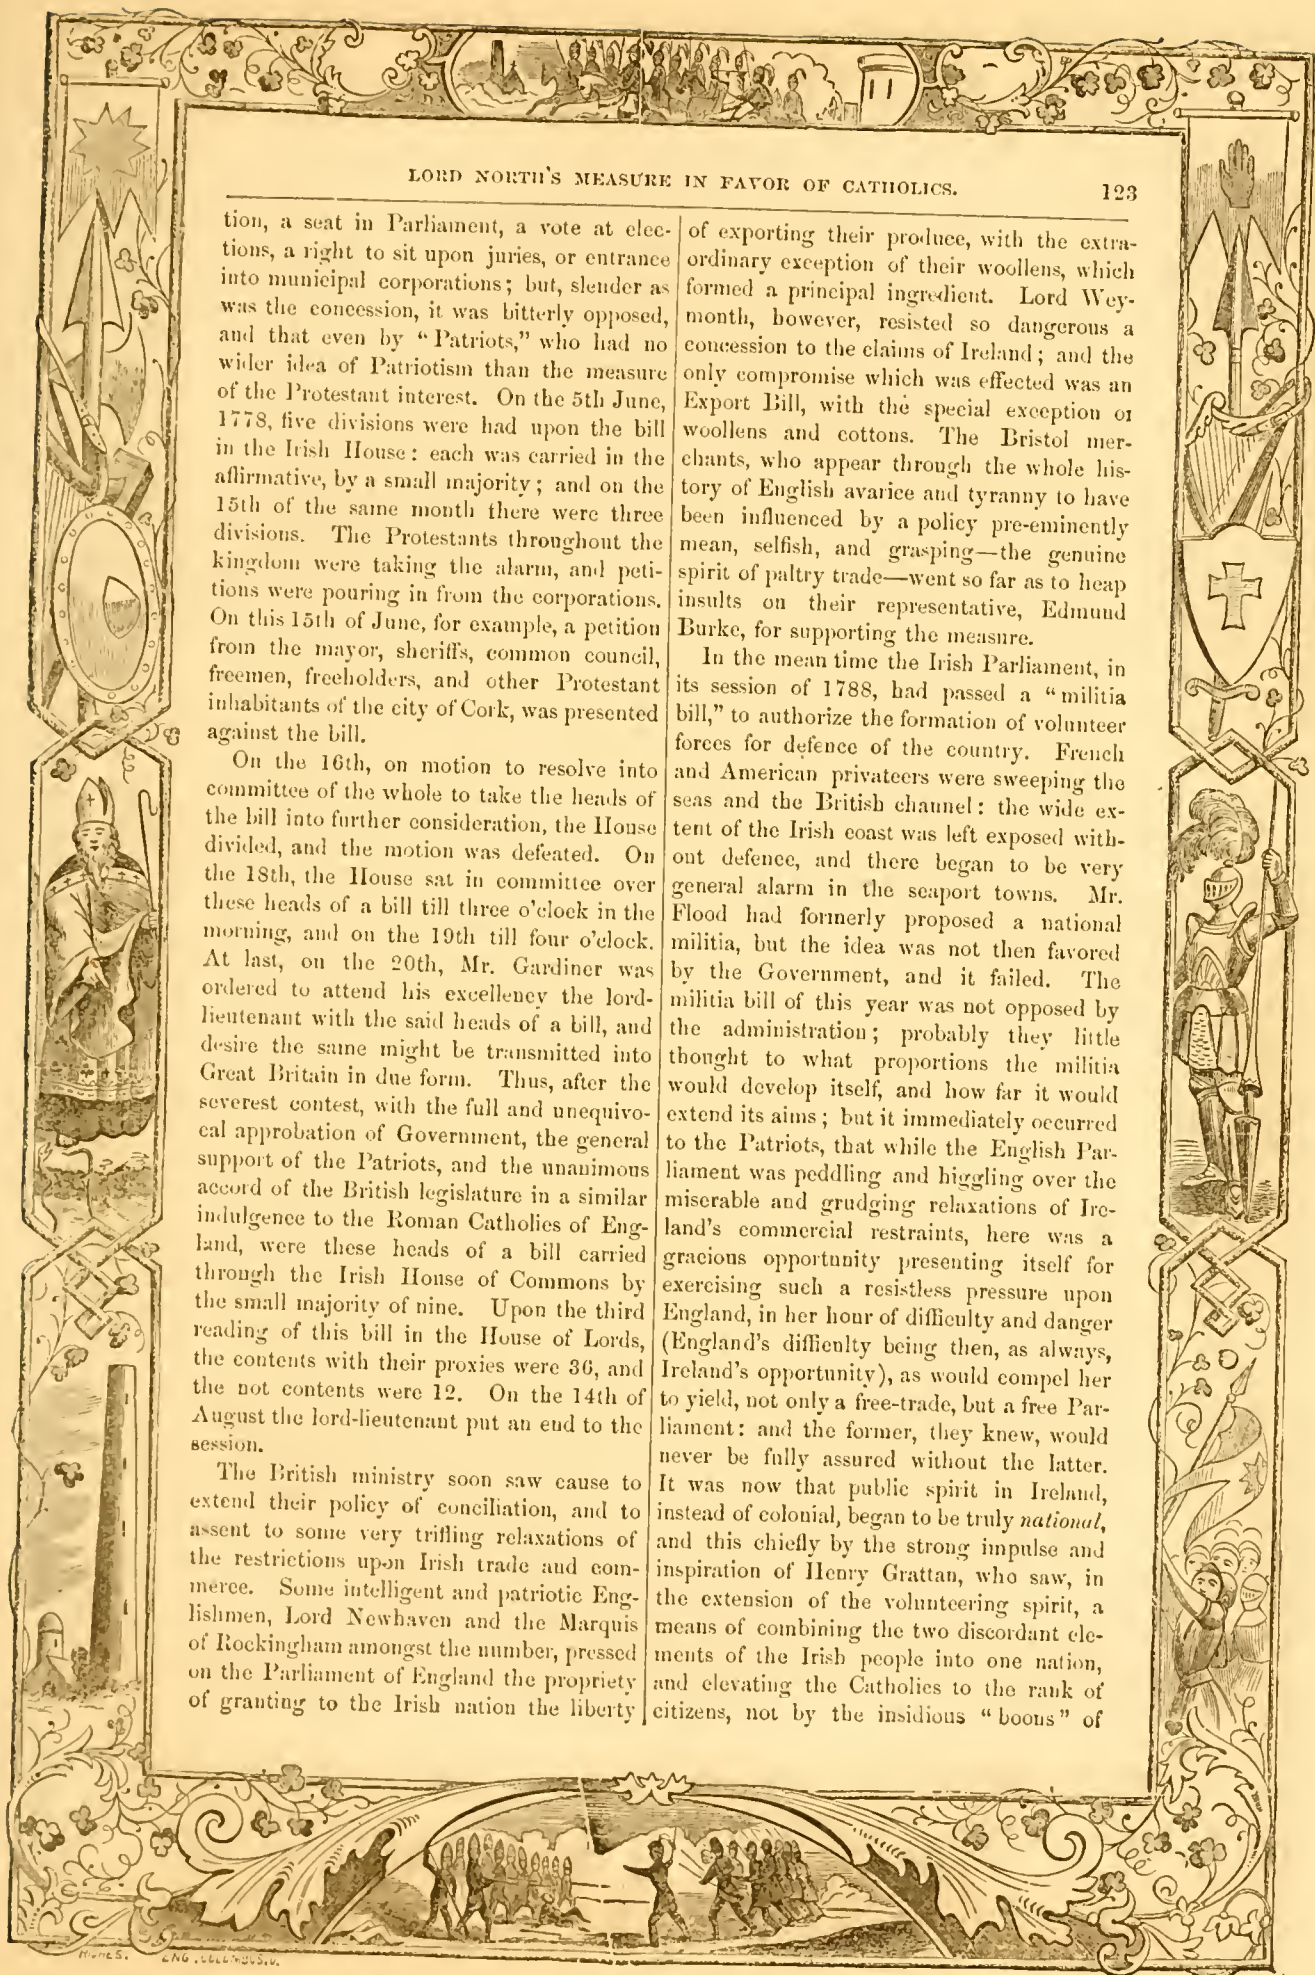 LORD NORTH'S MEASURE IN FAVOR OF CATHOLICS. 123
tion, a seat in Parliament, a vote at elec-
tions, a right to sit upon juries, or entrance
into municipal corporations; but, slender as
was the concession, it was bitterly opposed,
and that even by "Patriots," who had no
wider idea of Patriotism than the measure
of the Protestant interest. On the 5th June,
1778, five divisions were had upon the bill
in the Irish House: each was carried in the
affirmative, by a small majority; and on the
15th of the same month there were three
divisions. The Protestants throughout the
kingdom were taking the alarm, and peti-
tions were pouring in from the corporations.
On this 15th of June, for example, a petition
from the mayor, sheriffs, common council,
freemen, freeholders, and other Protestant
inhabitants of the city of Cork, was presented
against the bill.
On the 16th, on motion to resolve into
committee of the whole to take the heads of
the bill into further consideration, the House
divided, and the motion was defeated. On
the 18th, the House sat in committee over
these heads of a bill till three o'clock in the
morning, and on the 19th till four o'clock.
At last, on the 20th, Mr. Gardiner was
ordered to attend his excellency the lord-
lieutenant with the said heads of a bill, and
desire the same might be transmitted into
Great Britain in due form. Thus, after the
severest contest, with the full and unequivo-
cal approbation of Government, the general
support of the Patriots, and the unanimous
accord of the British legislature in a similar
indulgence to the Roman Catholics of Eng-
land, were these heads of a bill carried
through the Irish House of Commons by
the small majority of nine. Upon the third
reading of this bill in the House of Lords,
the contents with their proxies were 36, and
the not contents were 12. On the 14th of
August the lord-lieutenant put an end to the
session.
The British ministry soon saw cause to
extend their policy of conciliation, and to
assent to some very trifling relaxations of
the restrictions upon Irish trade and com-
merce. Some intelligent and patriotic Eng-
lishmen, Lord Newhaven and the Marquis
of Rockingham amongst the number, pressed
on the Parliament of England the propriety
of granting to the Irish nation the liberty
of exporting their produce, with the extra-
ordinary exception of their woollens, which
formed a principal ingredient. Lord Wey-
mouth, however, resisted so dangerous a
concession to the claims of Ireland; and the
only compromise which was effected was an
Export Bill, with the special exception of
woollens and cottons. The Bristol mer-
chants, who appear through the whole his-
tory of English avarice and tyranny to have
been influenced by a policy pre-eminently
mean, selfish, and grasping—the genuine
spirit of paltry trade—went so far as to heap
insults on their representative, Edmund
Burke, for supporting the measure.
In the mean time the Irish Parliament, in
its session of 1788, had passed a "militia
bill," to authorize the formation of volunteer
forces for defence of the country. French
and American privateers were sweeping the
seas and the British channel: the wide ex-
tent of the Irish coast was left exposed with-
out defence, and there began to be very
general alarm in the seaport towns. Mr.
Flood had formerly proposed a national
militia, but the idea was not then favored
by the Government, and it failed. The
militia bill of this year was not opposed by
the administration; probably they little
thought to what proportions the militia
would develop itself, and how far it would
extend its aims; but it immediately occurred
to the Patriots, that while the English Par-
liament was peddling and higgling over the
miserable and grudging relaxations of Ire-
land's commercial restraints, here was a
gracious opportunity presenting itself for
exercising such a resistless pressure upon
England, in her hour of difficulty and danger
(England's difficulty being then, as always,
Ireland's opportunity), as would compel her
to yield, not only a free-trade, but a free Par-
liament: and the former, they knew, would
never be fully assured without the latter.
It was now that public spirit in Ireland,
instead of colonial, began to be truly national,
and this chiefly by the strong impulse and
inspiration of Henry Grattan, who saw, in
the extension of the volunteering spirit, a
means of combining the two discordant ele-
ments of the Irish people into one nation,
and elevating the Catholics to the rank of
citizens, not by the insidious "boons" of
ENG.